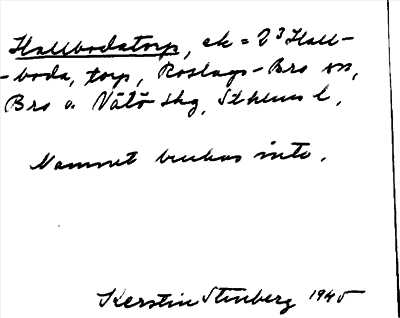 Hallbodatorp, ek = 2³ Hall-
-boda, torp, Roslags-Bro sn,
Bro o. Vätö skg, Sthlms l.
Namnet brukas inte.
Kerstin Stenberg 1945